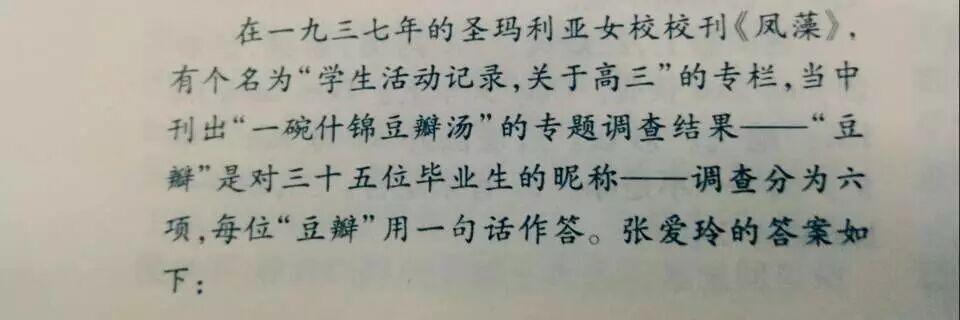 在一九三七年的圣玛利亚女校校刊《凤藻》,
有个名为“学生活动记录,关于高三”的专栏,当中
刊出“一碗什锦豆瓣汤”的专题调查结果——“豆
瓣”是对三十五位毕业生的昵称——调查分为六
项,每位“豆瓣”用一句话作答。张爱玲的答案如
下: